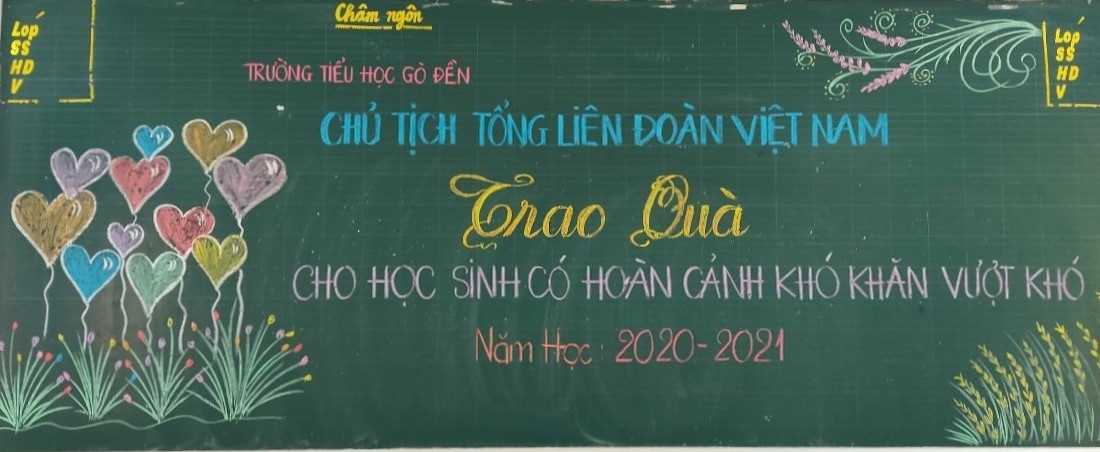 Lớp
SS
HD
V
Châm ngôn
Lớp
SS
HD
V
TRƯỜNG TIỂU HỌC GÒ ĐỀN
CHỦ TỊCH TỔNG LIÊN ĐOÀN VIỆT NAM
Trao Quà
CHO HỌC SINH CÓ HOÀN CẢNH KHÓ KHĂN VƯỢT KHÓ
Năm Học: 2020-2021